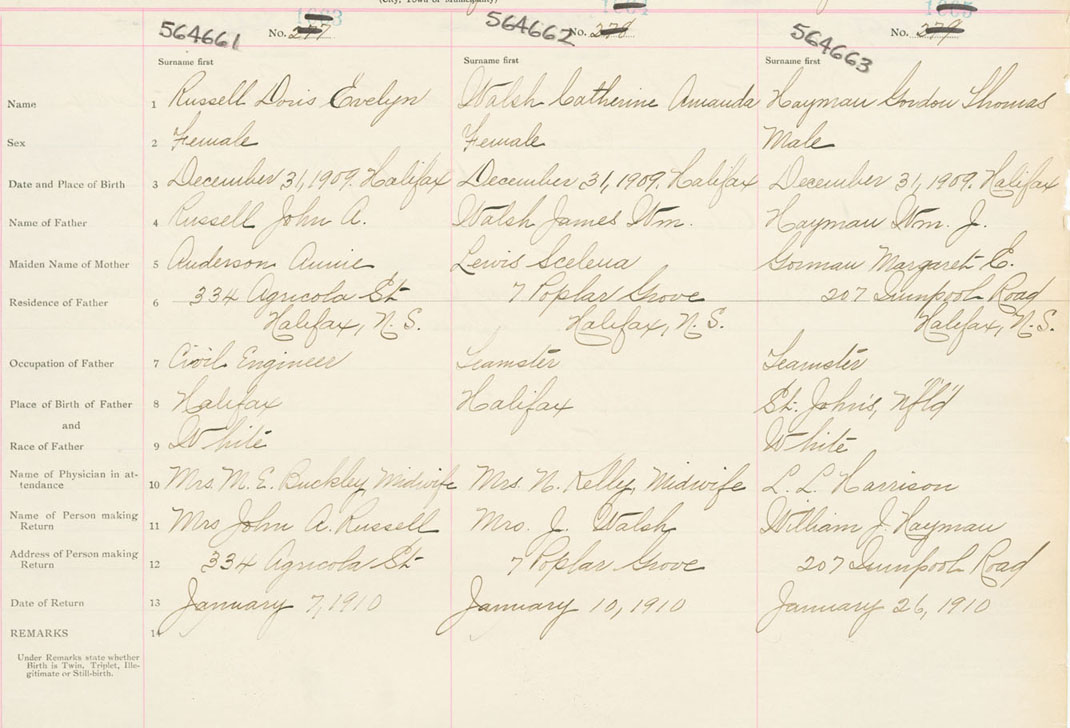 (City, Town or Municipality)
564661 No. 277
564662 No. 278
564663 No. 279
Surname first Surname first Surname first
Name 1 Russell Doris Evelyn Walsh Catherine Amanda Hayman Gordon Thomas
Sex 2 Female Female Male
Date and Place of Birth 3 December 31, 1909. Halifax December 31, 1909. Halifax December 31, 1909. Halifax
Name of Father 4 Russell John A. Walsh James Wm. Hayman Wm. J.
Maiden Name of Mother 5 Anderson Annie Lewis Scelena Gorman Margaret E.
Residence of Father 6 334 Agricola St 7 Poplar Grove 207 Road
Halifax, N.S. Halifax, N.S. Halifax, N.S.
Occupation of Father 7 Civil Engineer Teamster Teamster
Place of Birth of Father 8 Halifax Halifax St. John's, Nfld
and
Race of Father 9 White White
Name of Physician in at-
tendance 10 Mrs. M. E. Buckley, Midwife Mrs. N. Kelly, Midwife L. L. Harrison
Name of Person making
Return 11 Mrs John A. Russell Mrs. J. Walsh William J. Hayman
Address of Person making
Return 12 334 Agricola St 7 Poplar Grove 207 Road
Date of Return 13 January 7, 1910 January 10, 1910 January 26, 1910
REMARKS 14
Under Remarks state whether
Birth is Twin, Triplet, Ille-
gitimate or Still-birth.